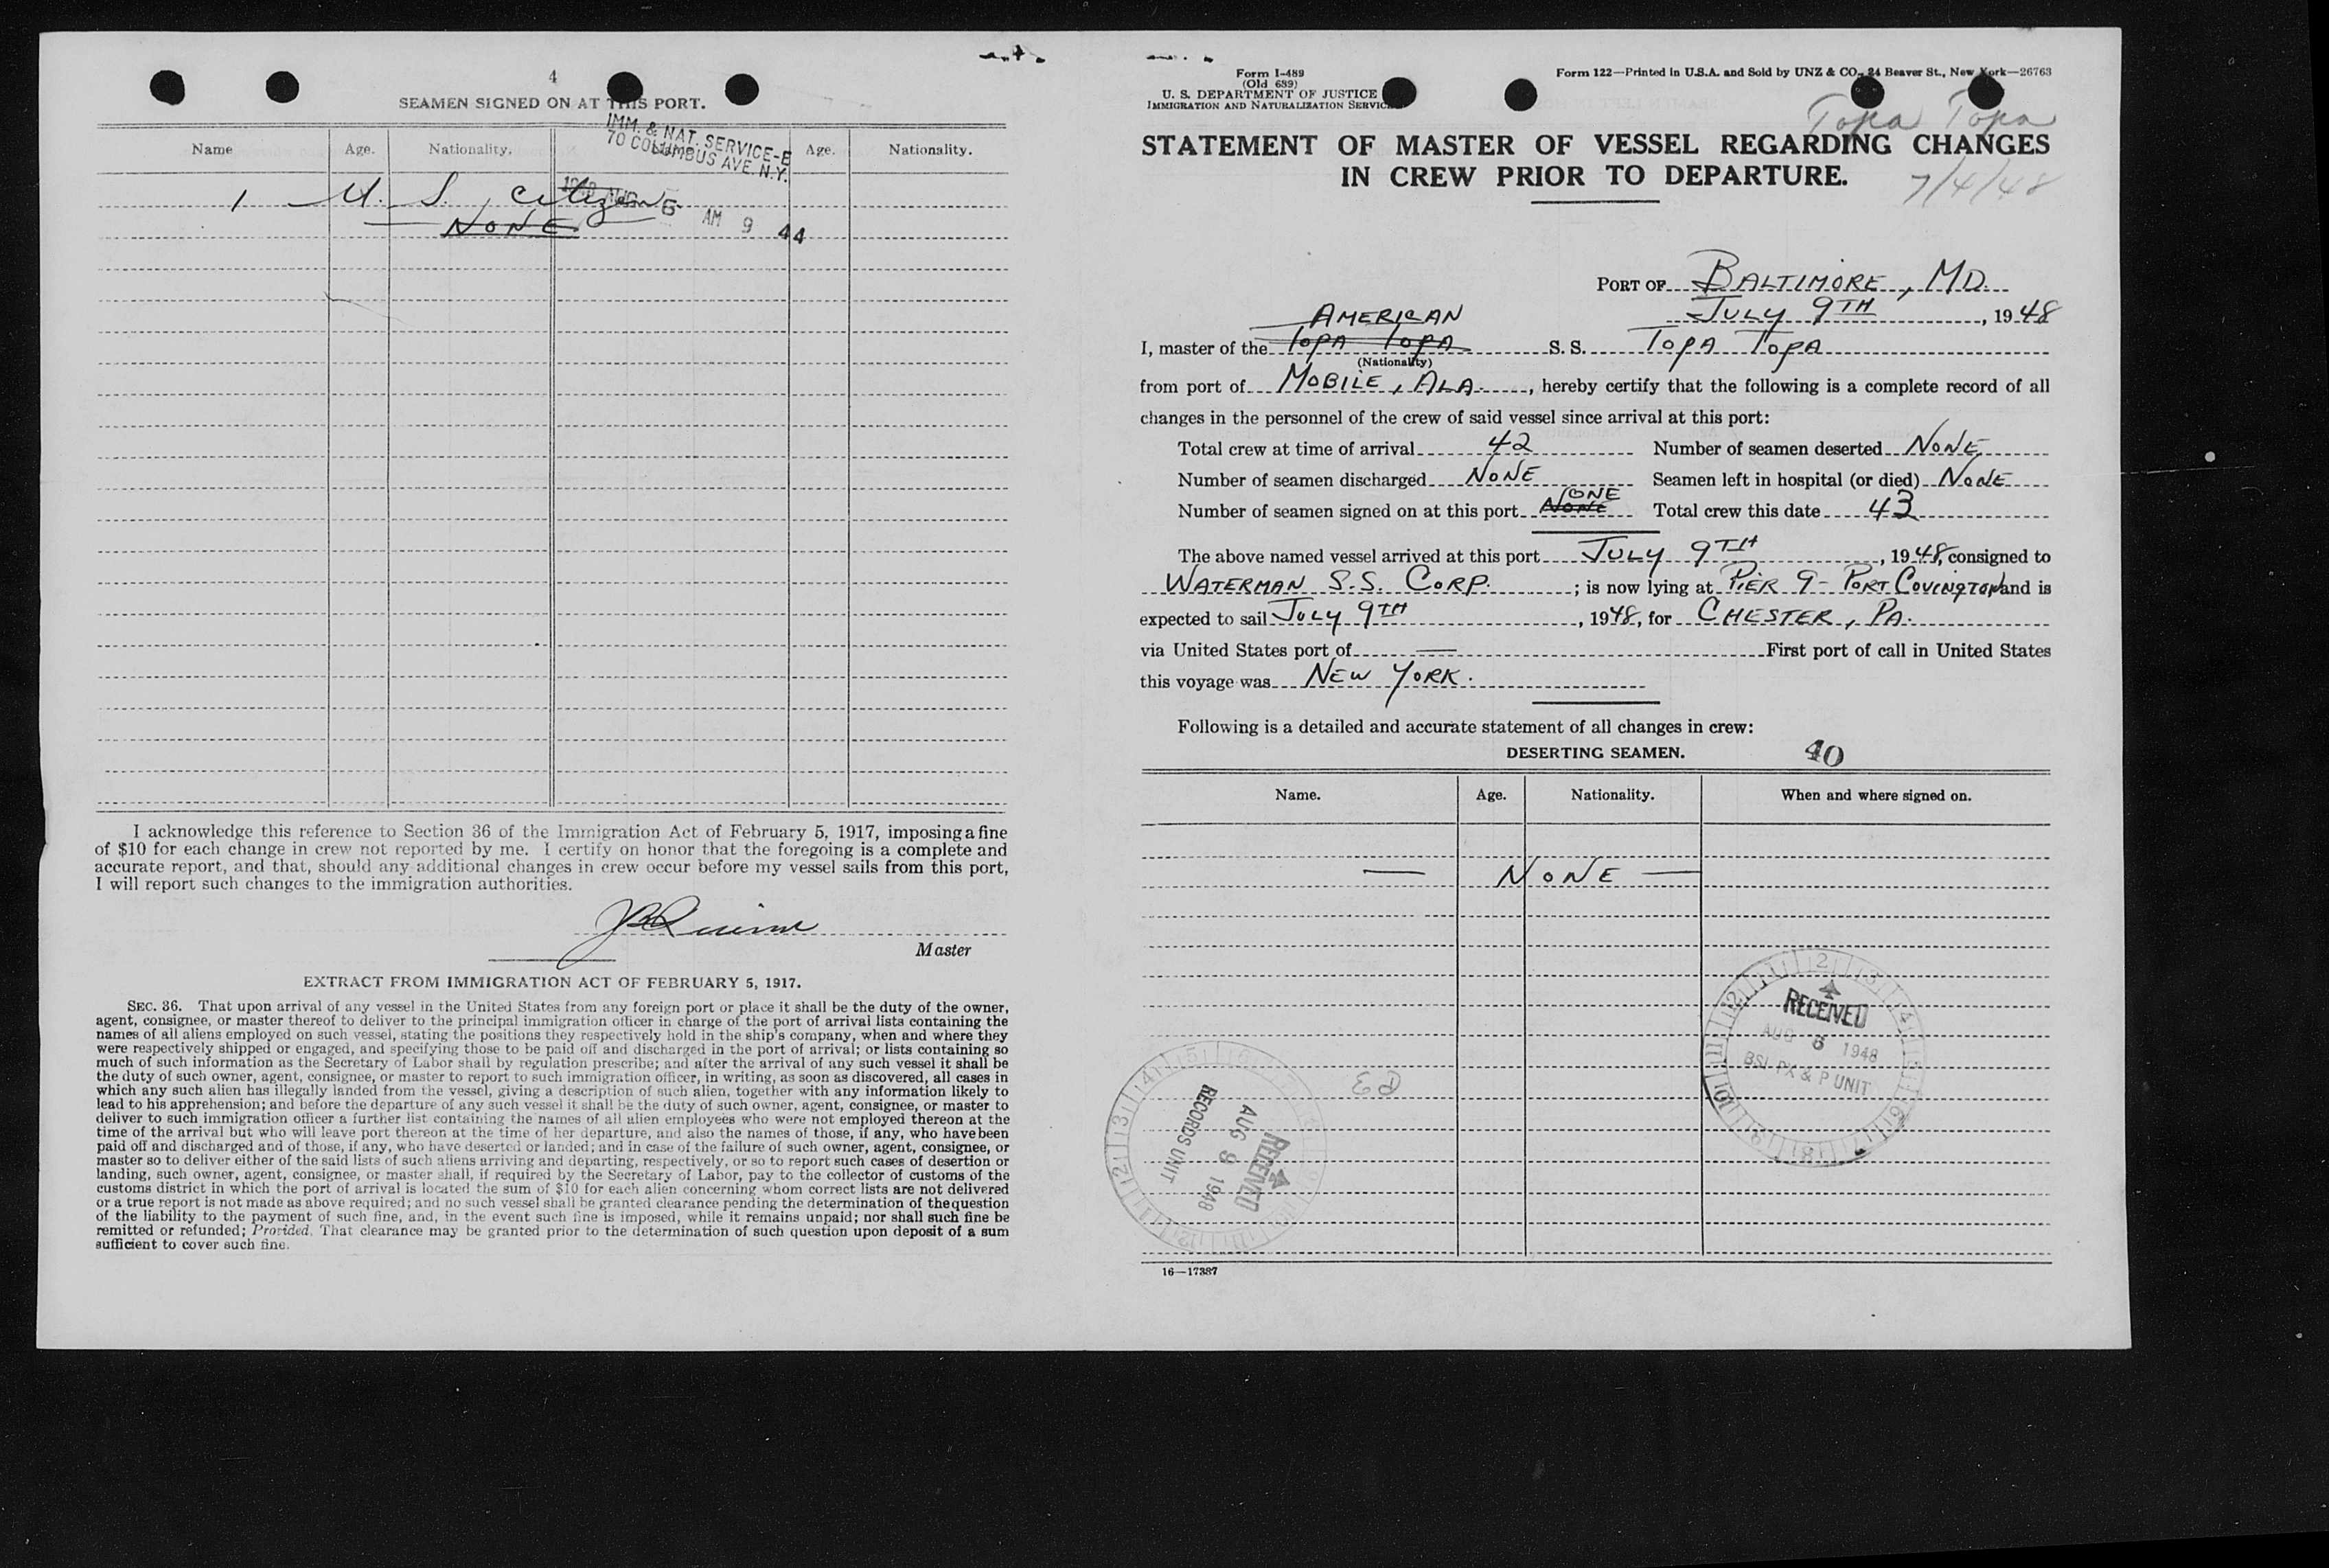 4
SEAMEN SIGNED ON AT THIS PORT.
IMM. & NAT. SERVICE-E
70 COLUMBUS AVE. N.Y.
Name Age. Nationality. Age. Nationality.
1 U. S. Citizen
AUG 5 AM 9 44
NONE
I acknowledge this reference to Section 36 of the Immigration Act of February 5, 1917, imposing a fine
of $10 for each change in crew not reported by me. I certify on honor that the foregoing is a complete and
accurate report, and that, should any additional changes in crew occur before my vessel sails from this port,
I will report such changes to the immigration authorities.
Master
EXTRACT FROM IMMIGRATION ACT OF FEBRUARY 5, 1917.
SEC. 36. That upon arrival of any vessel in the United States from any foreign port or place it shall be the duty of the owner,
agent, consignee, or master thereof to deliver to the principal immigration officer in charge of the port of arrival lists containing the
names of all aliens employed on such vessel, stating the positions they respectively hold in the ship's company, when and where they
were respectively shipped or engaged, and specifying those to be paid off and discharged in the port of arrival; or lists containing so
much of such information as the Secretary of Labor shall by regulation prescribe; and after the arrival of any such vessel it shall be
the duty of such owner, agent, consignee, or master to report to such immigration officer, in writing, as soon as discovered, all cases in
which any such alien has illegally landed from the vessel, giving a description of such alien, together with any information likely to
lead to his apprehension; and before the departure of any such vessel it shall be the duty of such owner, agent, consignee, or master to
deliver to such immigration officer a further list containing the names of all alien employees who were not employed thereon at the
time of the arrival but who will leave port thereon at the time of her departure, and also the names of those, if any, who have been
paid off and discharged and of those, if any, who have deserted or landed; and in case of the failure of such owner, agent, consignee, or
master so to deliver either of the said lists of such aliens arriving and departing, respectively, or so to report such cases of desertion or
landing, such owner, agent, consignee, or master shall, if required by the Secretary of Labor, pay to the collector of customs of the
customs district in which the port of arrival is located the sum of $10 for each alien concerning whom correct lists are not delivered
or a true report is not made as above required; and no such vessel shall be granted clearance pending the determination of the question
of the liability to the payment of such fine, and, in the event such fine is imposed, while it remains unpaid; nor shall such fine be
remitted or refunded; Provided, That clearance may be granted prior to the determination of such question upon deposit of a sum
sufficient to cover such fine.
Form I-489
(Old 689)
U. S. DEPARTMENT OF JUSTICE
IMMIGRATION AND NATURALIZATION SERVICE
Form 122—Printed in U.S.A. and Sold by UNZ & CO., 24 Beaver St., New York—26763
Topa Topa
STATEMENT OF MASTER OF VESSEL REGARDING CHANGES
IN CREW PRIOR TO DEPARTURE.
7/4/48
PORT OF BALTIMORE, MD.
JULY 9TH, 1948
AMERICAN
I, master of the TOPA TOPA S. S. TOPA TOPA
(Nationality)
from port of MOBILE, ALA., hereby certify that the following is a complete record of all
changes in the personnel of the crew of said vessel since arrival at this port:
Total crew at time of arrival 42 Number of seamen deserted NONE
Number of seamen discharged NONE Seamen left in hospital (or died) NONE
ONE
Number of seamen signed on at this port NONE Total crew this date 43
The above named vessel arrived at this port JULY 9TH, 1948, consigned to
WATERMAN S.S. CORP.; is now lying at PIER 9- PORT COVINGTON and is
expected to sail JULY 9TH, 1948, for CHESTER, PA.
via United States port of — First port of call in United States
this voyage was NEW YORK.
Following is a detailed and accurate statement of all changes in crew:
DESERTING SEAMEN. 40
Name. Age. Nationality. When and where signed on.
— NONE —
RECEIVED
AUG 5 1948
BSI PX & P UNIT
RECEIVED
AUG 9 1948
RECORDS UNIT
16—17387